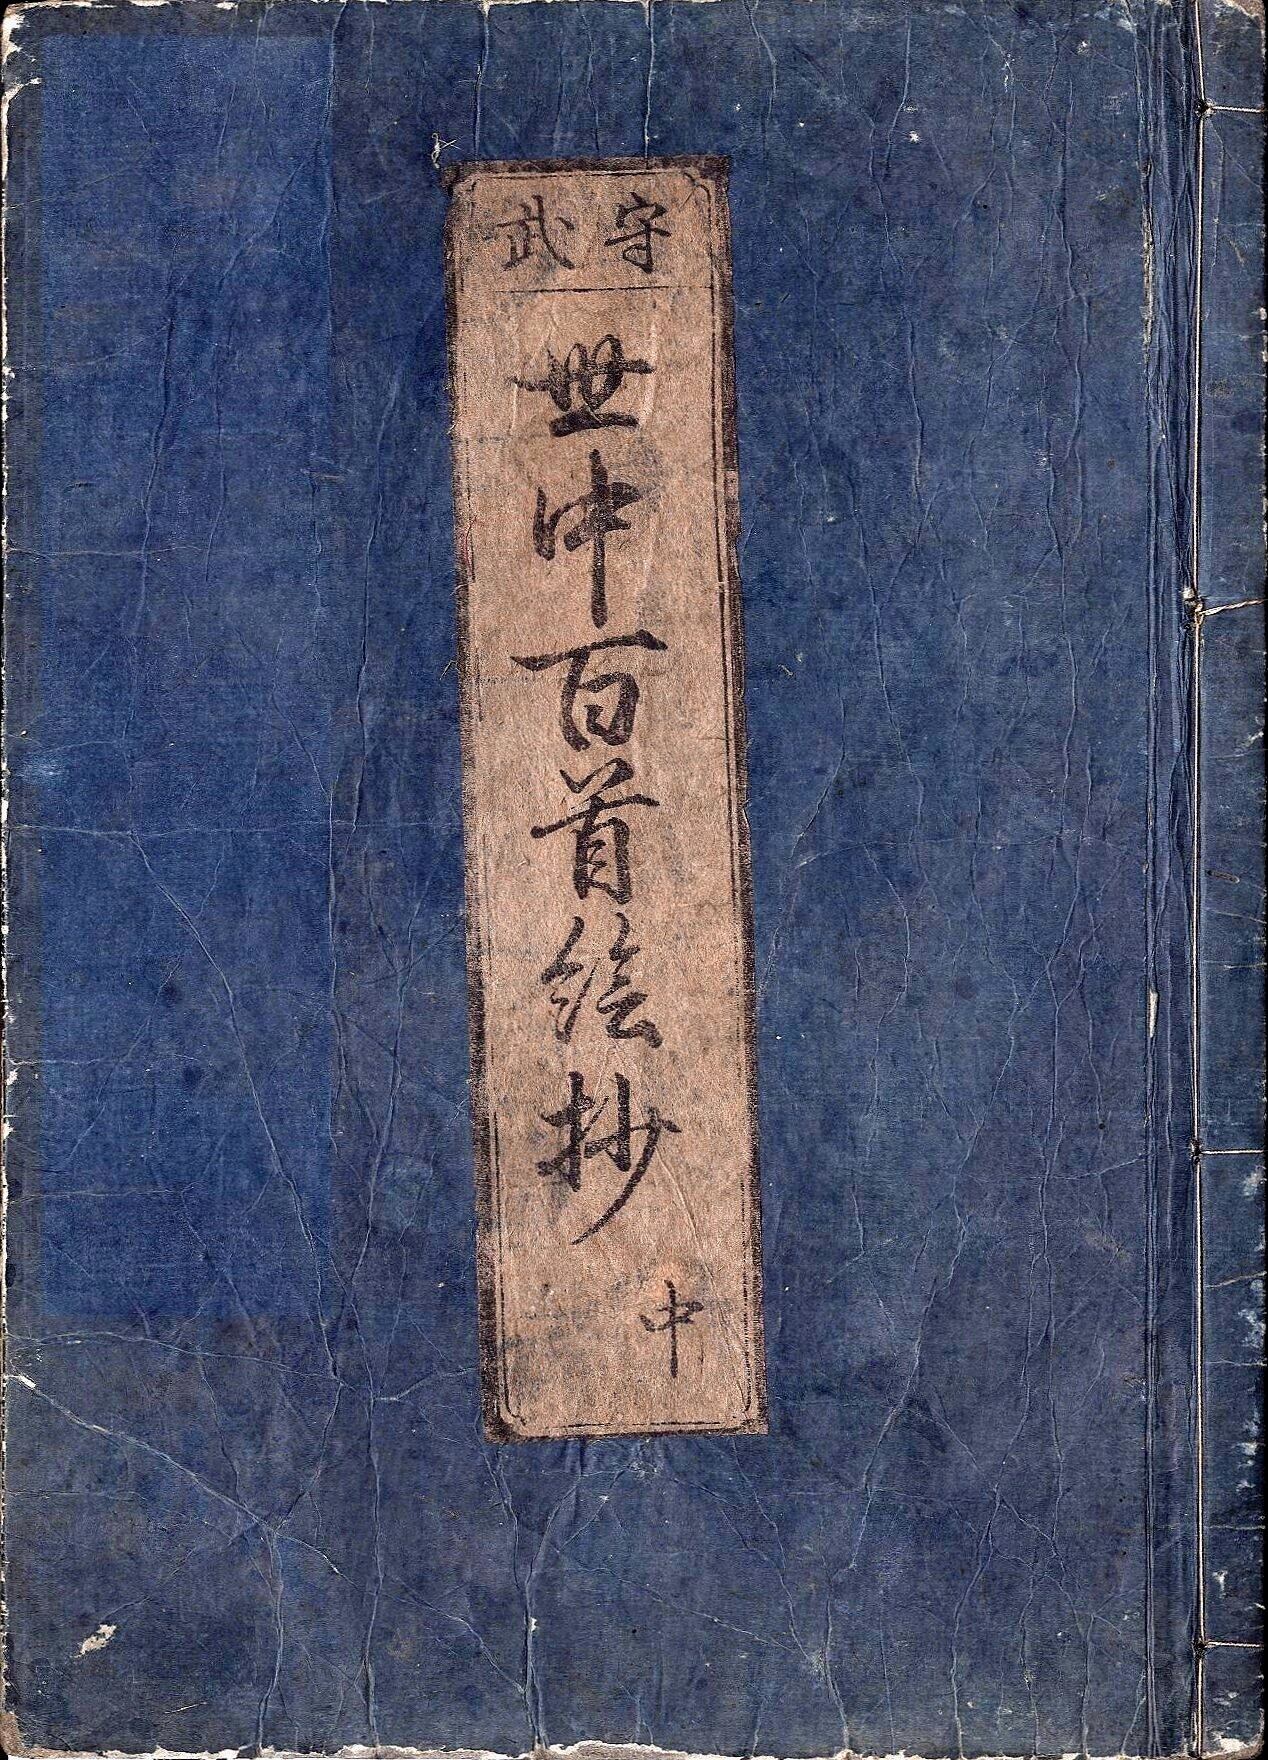 守武
世中百首絵抄
中